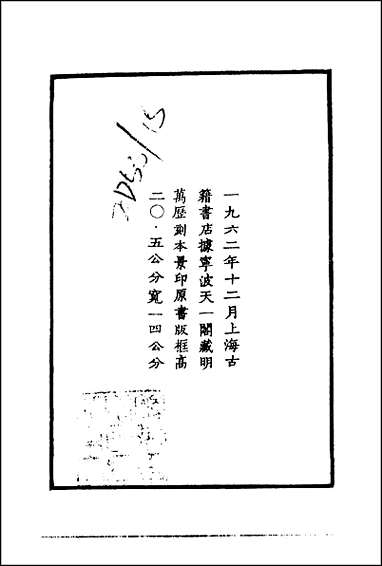 一九六二年十二月上海古
籍書店據寧波天一閣藏明
萬歷刻本景印原書版框高
二〇·五公分寬一四公分